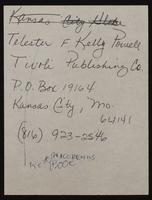 Kansas City Star
Telester F Kelly Powell
Tivoli Publishing Co.
P.O. Box 19164
Kansas City, Mo.
64141
(816) 923-2546
BOOK